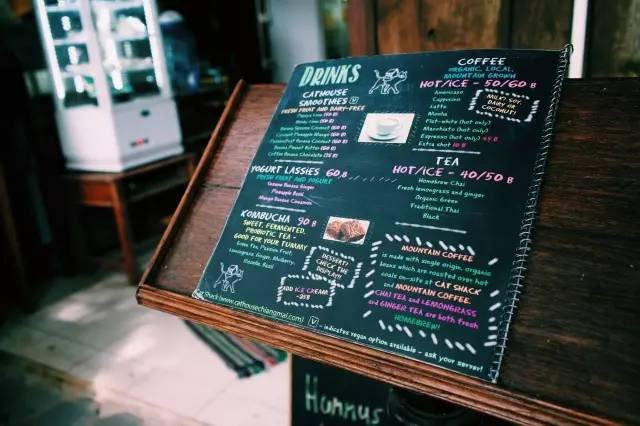 DRINKS
CATHOUSE
SMOOTHIES V
FRESH FRUIT AND DAIRY-FREE
Banana Sesame Coconut
Coconut Pineapple Mango
Passionfruit Banana Coconut
Banana Peanut Butter
Coffee Banana Chocolate
YOGURT LASSIES 60 B
FRESH FRUIT AND YOGURT
Sesame Banana Ginger
Pineapple Basil
Mango Banana Cinnamon
KOMBUCHA 90 B
SWEET, FERMENTED,
PROBIOTIC TEA -
GOOD FOR YOUR TUMMY
Green Tea, Passion Fruit,
Lemongrass Ginger, Mulberry,
Roselle, Basil
DESSERT?
CHECK THE
DISPLAY!!
ADD ICE CREAM
COFFEE
ORGANIC, LOCAL,
MOUNTAIN GROWN
HOT/ICE - 50/60 B
Americano
Cappucino
Latte
Mocha
Flat-white (hot only)
Macchiato (hot only)
Espresso (hot only) 45 B
Extra shot 10 B
MILK? SOY,
DAIRY OR
COCONUT!
TEA
HOT/ICE - 40/50 B
Homebrew Chai
Fresh lemongrass and ginger
Organic Green
Traditional Thai
Black
MOUNTAIN COFFEE
is made with single origin, organic
beans which are roasted over hot
coals on-site at CAT SHACK
and MOUNTAIN COFFEE.
CHAI TEA and LEMONGRASS
and GINGER TEA are both fresh
HOMEBREW!
Shack (www.cathousechiangmai.com)
V - indicates vegan option available - ask your server!
Hummus